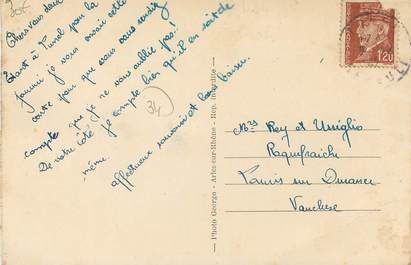 30€
Chers Vous deux
Étant à Tunel pour la
journée je vous envoie cette
carte pour que vous vous rendiez
compte que je ne vous oublie pas!
De votre côté je compte bien qu'il en soit de
même.
affectueux souvenir et bons baisers
34
Photo George - Arles-sur-Rhône - Rep. Interdite
1'20
Mrs Rey et Ussiglio
Raquefraiche
Lauris sur Durance
Vaucluse